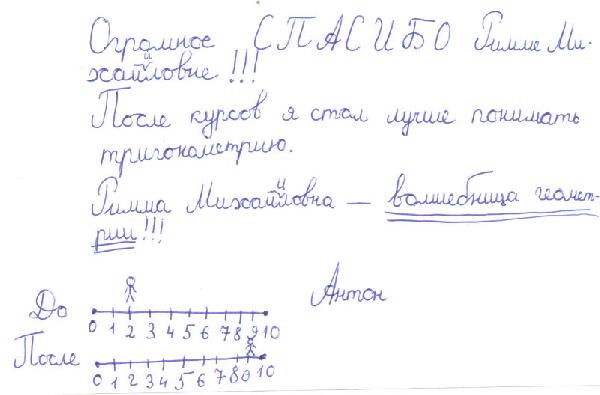 Огромное СПАСИБО Римме Ми-
хайловне!!!
После курсов я стал лучше понимать
тригонометрию.
Римма Михайловна — волшебница геомет-
рии!!!
Антон
До
0 1 2 3 4 5 6 7 8 9 10
После
0 1 2 3 4 5 6 7 8 9 10